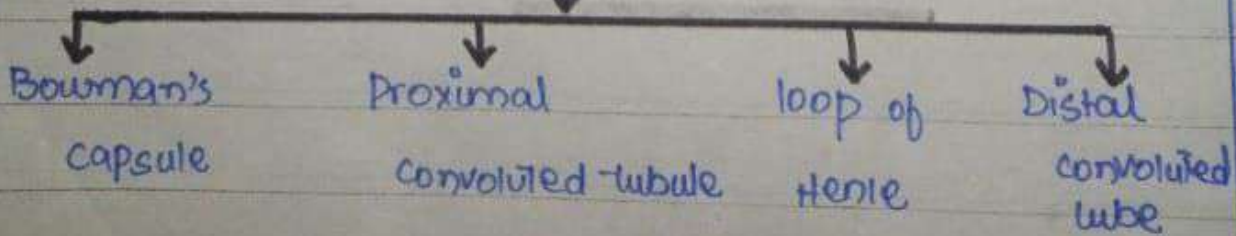 Bowman's
capsule
Proximal
convoluted tubule
loop of
Henle
Distal
convoluted
tube